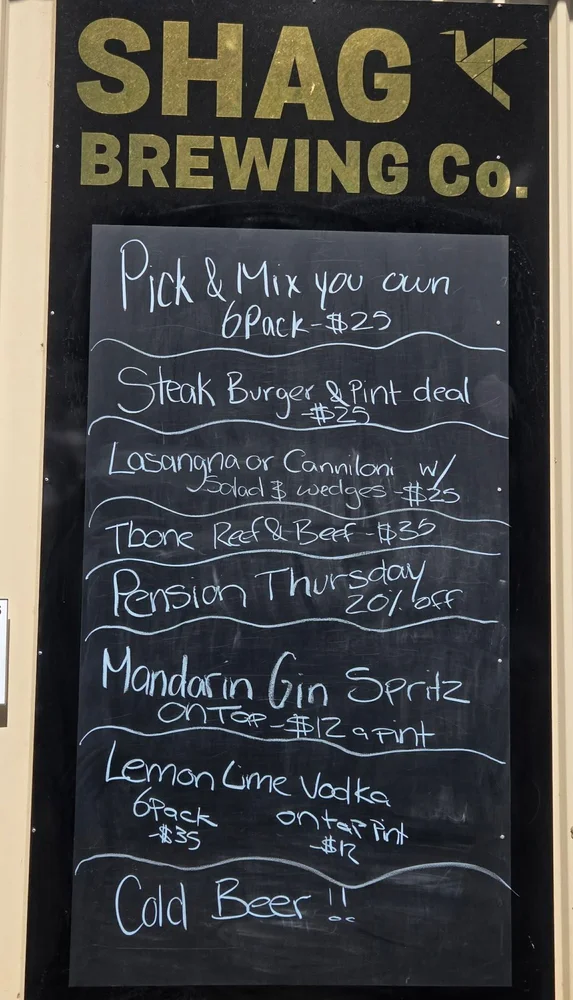 SHAG
BREWING Co.
Pick & Mix you own
6Pack-$25
Steak Burger & Pint deal
-$25
Lasangna or Canniloni w/
Salad & wedges -$25
Tbone Reef & Beef -$35
Pension Thursday
20% off
Mandarin Gin Spritz
on Tap -$12 a pint
Lemon Lime Vodka
6Pack on tap Pint
-$35 -$12
Cold Beer !!